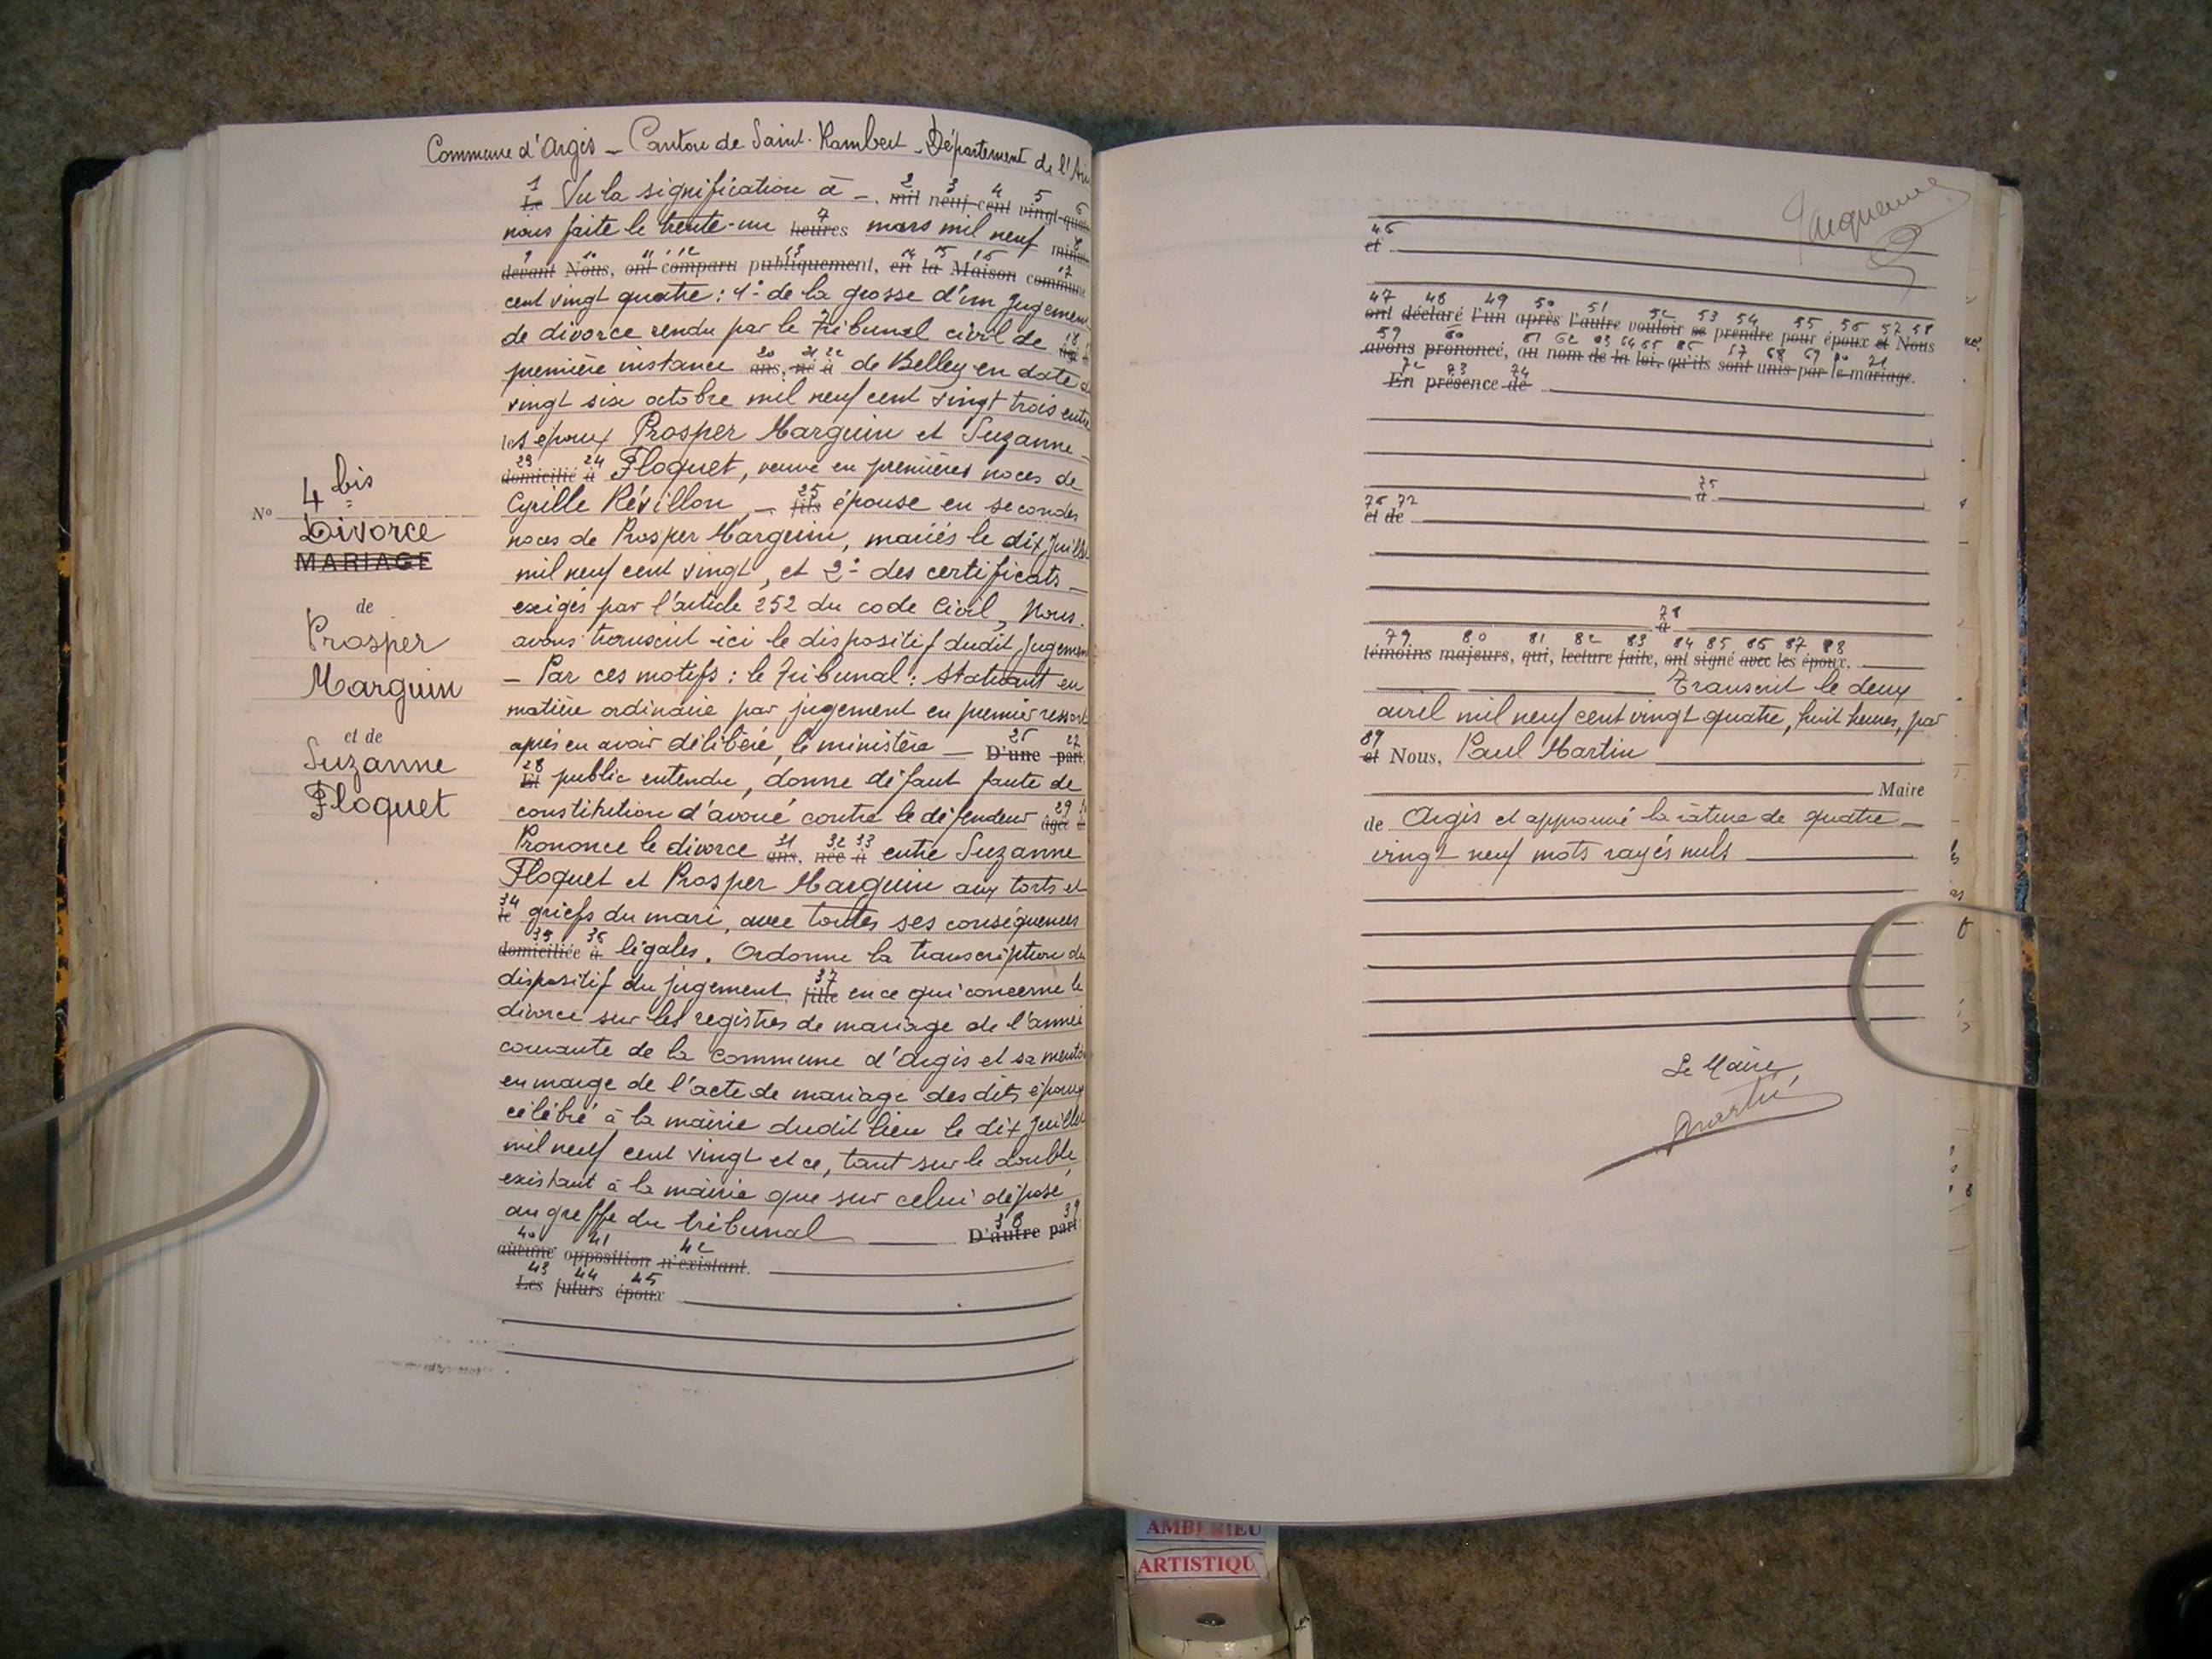 Commune d'Argis - Canton de Saint-Rambert - Département de l'Ain
1 2 3 4 5 6
Le Vu la signification à -, mil neuf cent vingt-quatre
7 8
nous faite le trente-un heures mars mil neuf minutes
9 10 11 12 13 14 15 16 17
devant Nous, ont comparu publiquement, en la Maison commune
cent vingt quatre : 1° de la grosse d'un Jugement
de divorce rendu par le Tribunal civil de
18
20 21 22
première instance ans, né à de Belley en date
vingt six octobre mil neuf cent vingt trois entre
les époux Prosper Marguin et Suzanne -
23 24
domicilié à Floquet, veuve en premières noces de
25
Cyrille Révillon, - fils épouse en secondes
noces de Prosper Marguin, mariés le dix Juillet
mil neuf cent vingt, et 2° des certificats -
exigés par l'article 252 du code Civil, Nous.
avons transcrit ici le dispositif dudit Jugement
- Par ces motifs : le Tribunal : Statuant en
matière ordinaire par jugement en premier ressort
26 27
après en avoir délibéré, le ministère - D'une part
28
Et public entendu, donne défaut faute de
29
constitution d'avoué contre le défendeur âgée
31 32 33
Prononce le divorce ans, née à entre Suzanne
Floquet et Prosper Marguin aux torts et
34
le griefs du mari, avec toutes ses conséquences
35 36
domiciliée à légales. Ordonne la transcription du
37
dispositif du jugement, fille en ce qui concerne le
divorce sur les registres de mariage de l'année
courante de la commune d'Argis et sa mention
en marge de l'acte de mariage des dits époux
célébré à la mairie dudit lieu le dix Juillet
mil neuf cent vingt et ce, tant sur le double
existant à la mairie que sur celui déposé
38 39
au greffe du tribunal D'autre part
40 41 42
aucune opposition n'existant.
43 44 45
Les futurs époux
4 bis
N°
Divorce
MARIAGE
de
Prosper
Marguin
et de
Suzanne
Floquet
46
et
47 48 49 50 51 52 53 54 55 56 57 58
ont déclaré l'un après l'autre vouloir se prendre pour époux et Nous
59 60 61 62 63 64 65 66 67 68 69 70 71
avons prononcé, au nom de la loi, qu'ils sont unis par le mariage.
72 73 74
En présence de
75
à
76 77
et de
78
à
79 80 81 82 83 84 85 86 87 88
témoins majeurs, qui, lecture faite, ont signé avec les époux.
Transcrit le deux
avril mil neuf cent vingt quatre, huit heures, par
89
et Nous, Paul Martin
Maire
de Argis et approuvé la rature de quatre -
vingt neuf mots rayés nuls
Le Maire,
Martin
AMBERIEU
ARTISTIQU